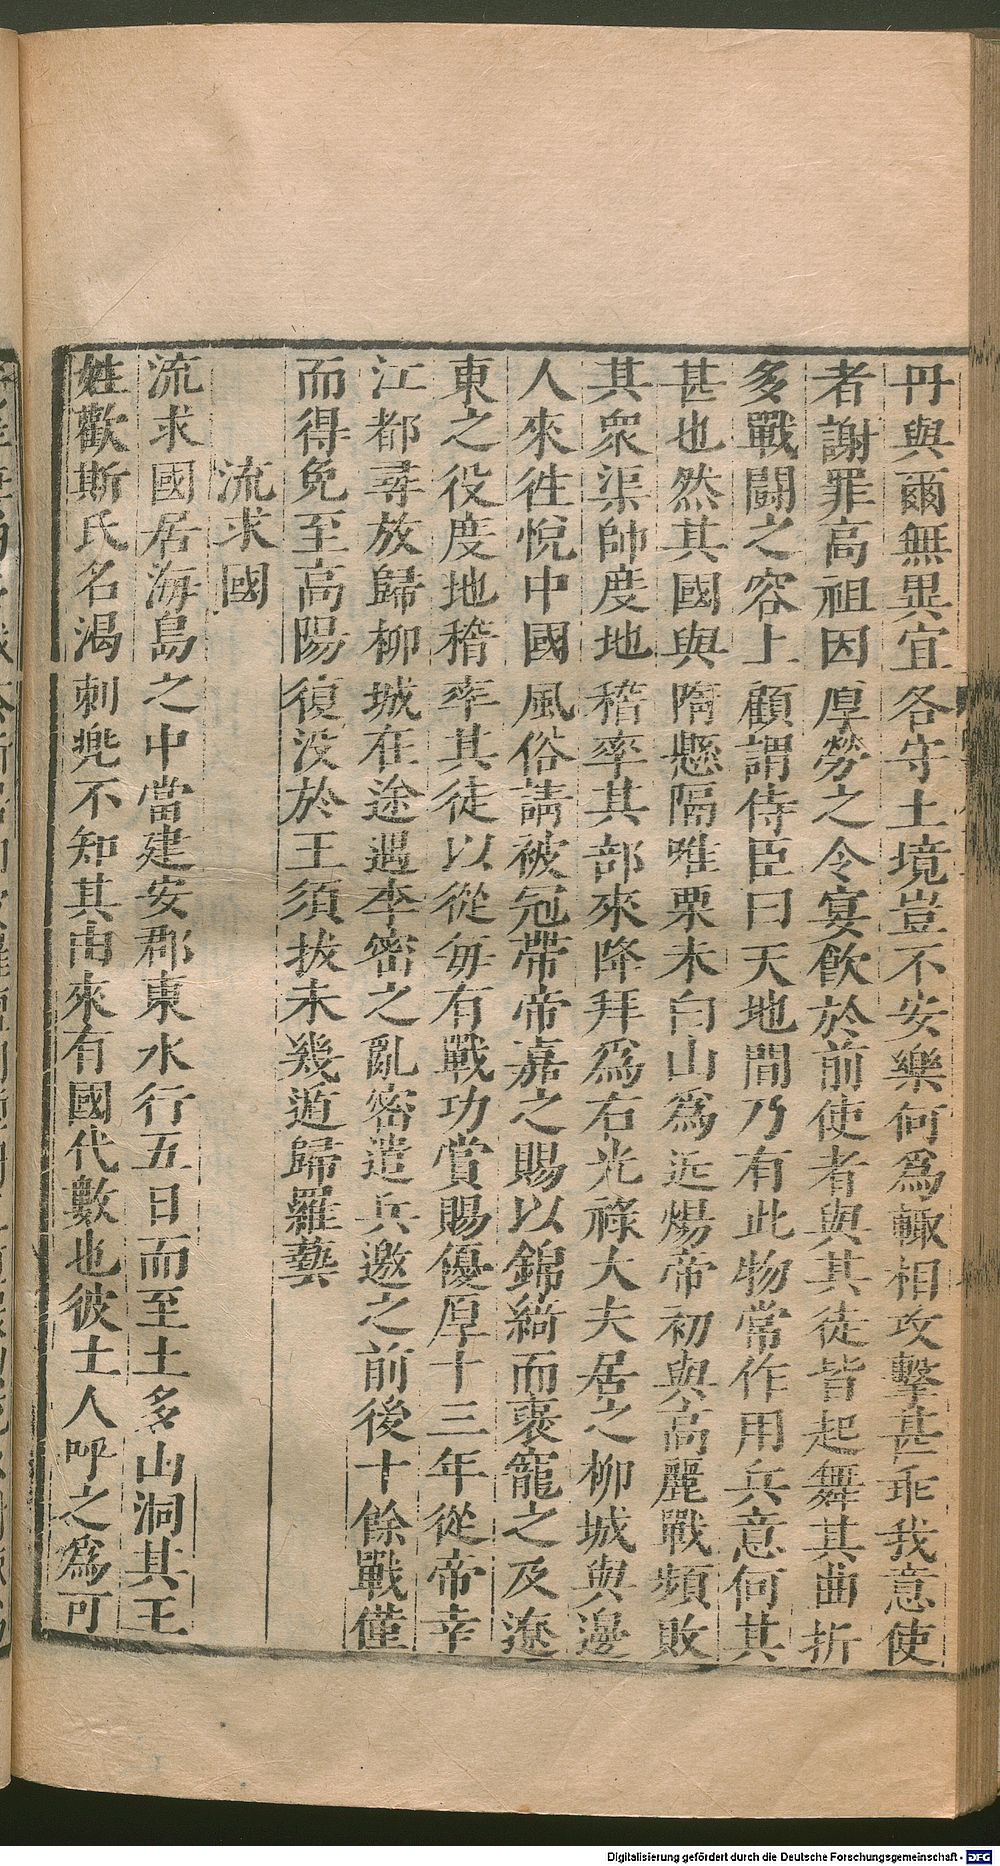 丹與爾無異宜各守土境豈不安樂何爲輙相攻擊甚乖我意使
者謝罪高祖因厚勞之令宴飲於前使者與其徒皆起舞其曲折
多戰鬬之容上顧謂侍臣曰天地間乃有此物常作用兵意何其
甚也然其國與隋懸隔唯栗末白山爲近煬帝初與高麗戰頻敗
其衆渠帥度地稽率其部來降拜爲右光祿大夫居之柳城與邊
人來徃悅中國風俗請被冠帶帝嘉之賜以錦綺而褒寵之及遼
東之役度地稽率其徒以從每有戰功賞賜優厚十三年從帝幸
江都尋放歸柳城在途遇李密之亂密遣兵邀之前後十餘戰僅
而得免至高陽復没於王須拔未幾遁歸羅藝
流求國
流求國居海島之中當建安郡東水行五日而至土多山洞其王
姓歡斯氏名渴剌兜不知其由來有國代數也彼土人呼之爲可
Digitalisierung gefördert durch die Deutsche Forschungsgemeinschaft - DFG